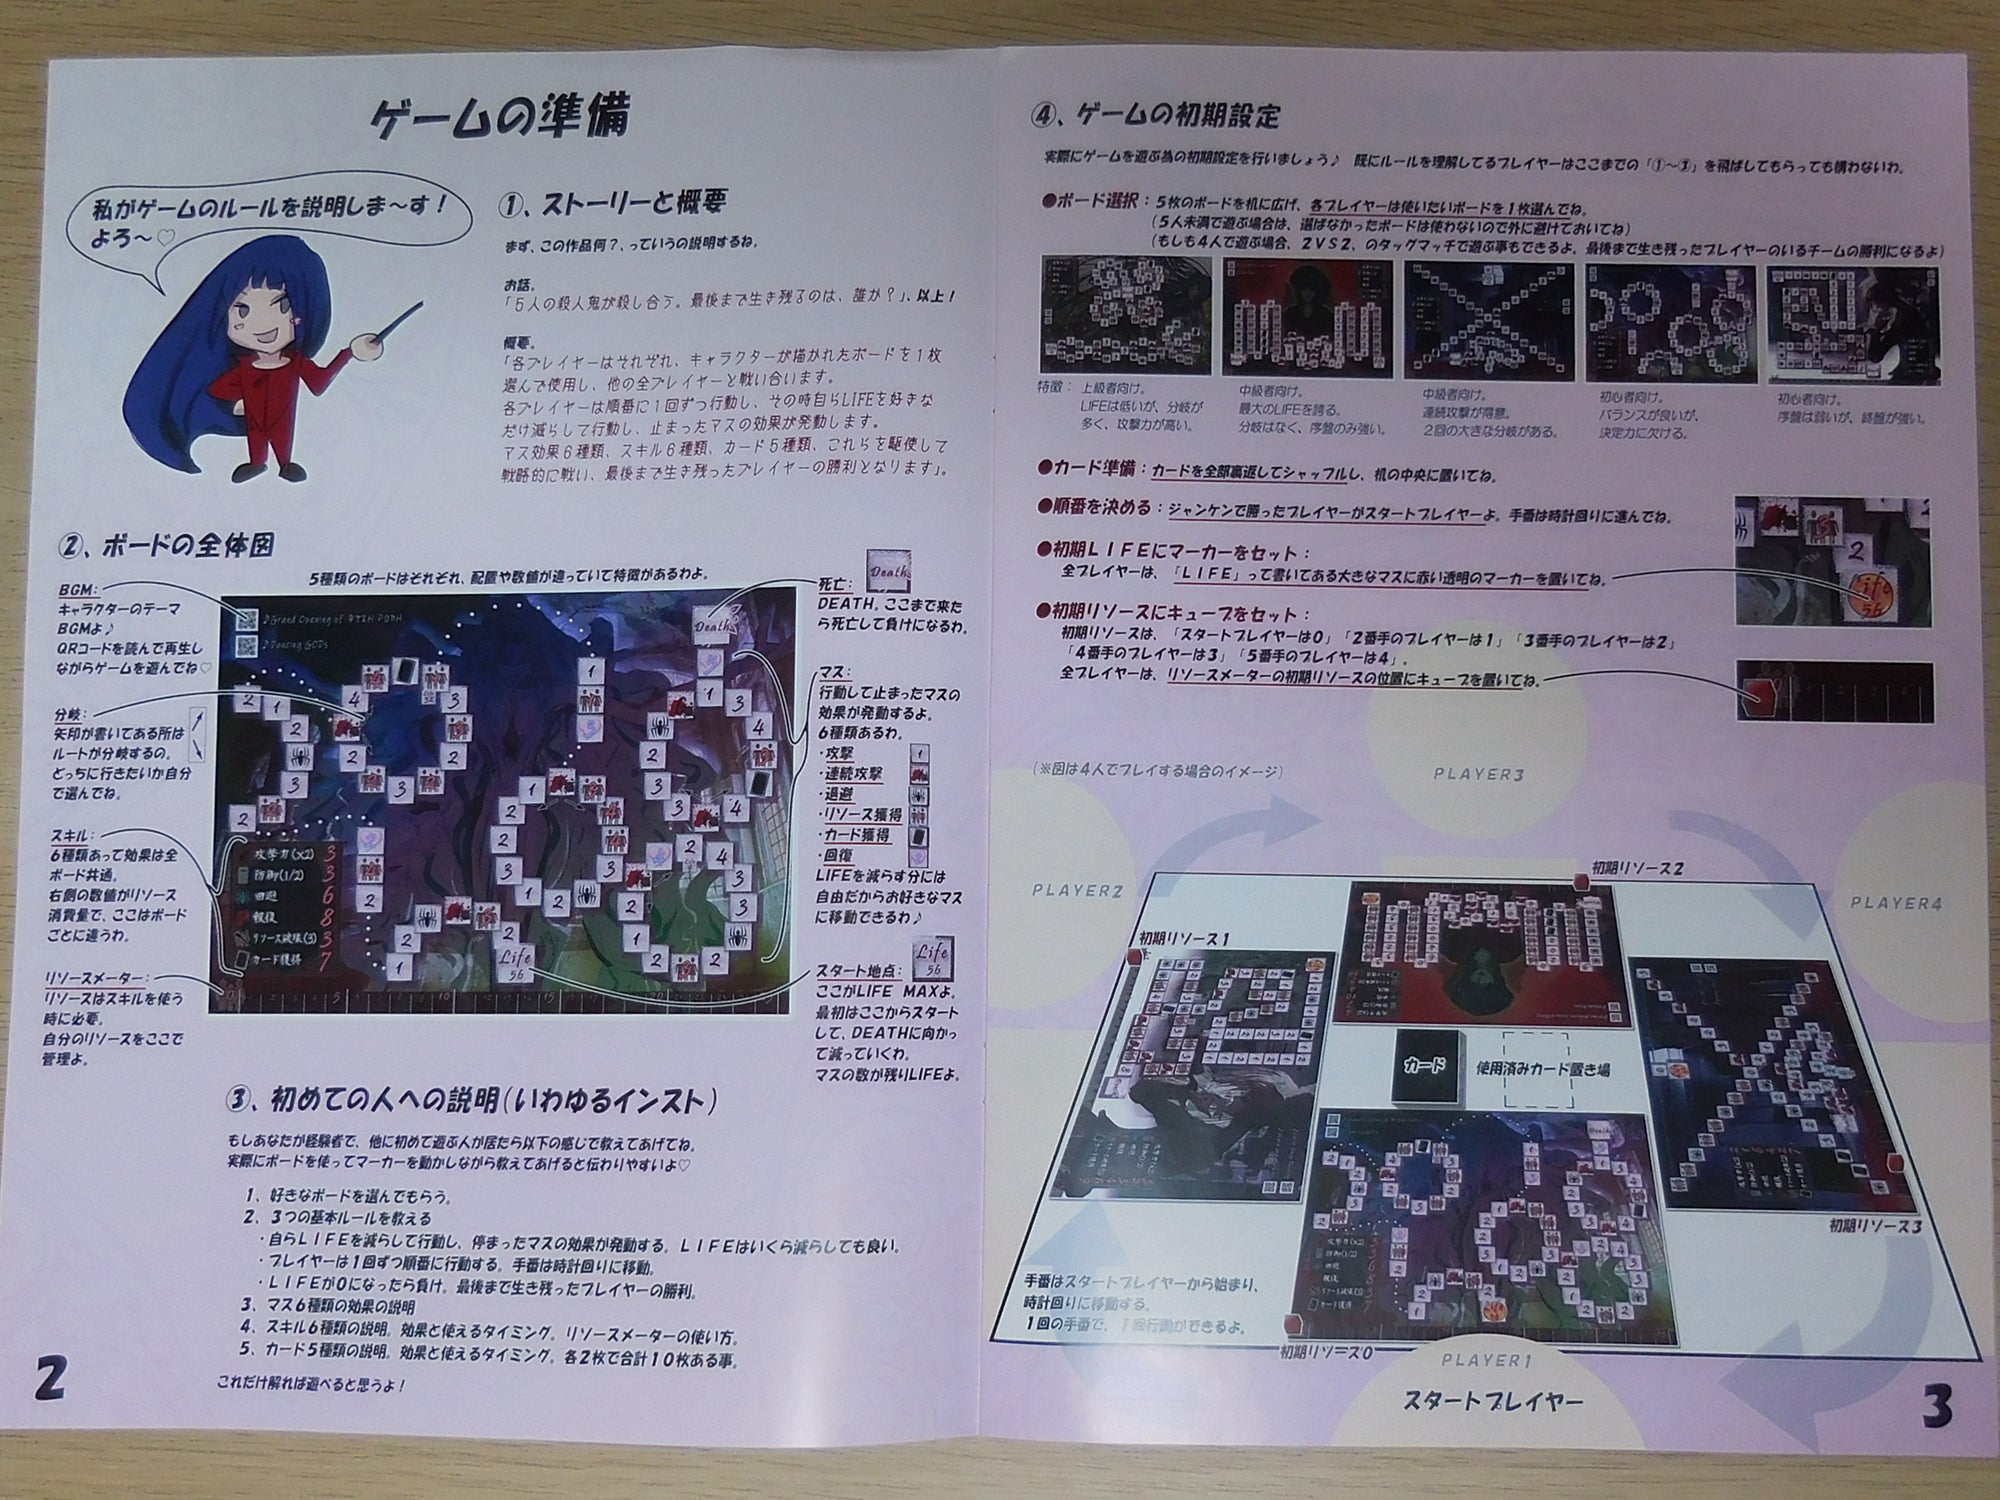 ゲームの準備
私がゲームのルールを説明しま～す！
よろ～♡
①、ストーリーと概要
まず、この作品何？、っていうの説明するね。
お話。
「5人の殺人鬼が殺し合う。最後まで生き残るのは、誰か？」、以上！
概要。
「各プレイヤーはそれぞれ、キャラクターが描かれたボードを1枚
選んで使用し、他の全プレイヤーと戦い合います。
各プレイヤーは順番に1回ずつ行動し、その時自らLIFEを好きな
だけ減らして行動し、止まったマスの効果が発動します。
マス効果6種類、スキル6種類、カード5種類、これらを駆使して
戦略的に戦い、最後まで生き残ったプレイヤーの勝利となります」。
②、ボードの全体図
5種類のボードはそれぞれ、配置や数値が違っていて特徴があるわよ。
BGM：
キャラクターのテーマ
BGMよ♪
QRコードを読んで再生し
ながらゲームを遊んでね♡
分岐：
矢印が書いてある所は
ルートが分岐するの。
どっちに行きたいか自分
で選んでね。
スキル：
6種類あって効果は全
ボード共通。
右側の数値がリソース
消費量で、ここはボード
ごとに違うわ。
リソースメーター：
リソースはスキルを使う
時に必要。
自分のリソースをここで
管理よ。
♪Dancing GODs
攻撃力(x2) 3
防御(1/2) 3
回避 6
報復 8
リソース破壊(3) 3
カード獲得 7
Death
Life
56
死亡：
Death
DEATH。ここまで来た
ら死亡して負けになるわ。
マス：
行動して止まったマスの
効果が発動するよ。
6種類あるわ。
・攻撃
・連続攻撃
・退避
・リソース獲得
・カード獲得
・回復
LIFEを減らす分には
自由だからお好きなマス
に移動できるわ♪
Life
56
スタート地点：
ここがLIFE MAXよ。
最初はここからスタート
して、DEATHに向かっ
て減っていくわ。
マスの数が残りLIFEよ。
③、初めての人への説明(いわゆるインスト)
もしあなたが経験者で、他に初めて遊ぶ人が居たら以下の感じで教えてあげてね。
実際にボードを使ってマーカーを動かしながら教えてあげると伝わりやすいよ♡
1、好きなボードを選んでもらう。
2、3つの基本ルールを教える
・自らLIFEを減らして行動し、停まったマスの効果が発動する。LIFEはいくら減らしても良い。
・プレイヤーは1回ずつ順番に行動する。手番は時計回りに移動。
・LIFEが0になったら負け。最後まで生き残ったプレイヤーの勝利。
3、マス6種類の効果の説明
4、スキル6種類の説明。効果と使えるタイミング。リソースメーターの使い方。
5、カード5種類の説明。効果と使えるタイミング。各2枚で合計10枚ある事。
これだけ解れば遊べると思うよ！
2
④、ゲームの初期設定
実際にゲームを遊ぶ為の初期設定を行いましょう♪ 既にルールを理解してるプレイヤーはここまでの「①～③」を飛ばしてもらっても構わないわ。
●ボード選択：5枚のボードを机に広げ、各プレイヤーは使いたいボードを1枚選んでね。
(5人未満で遊ぶ場合は、選ばなかったボードは使わないので外に避けておいてね)
(もしも4人で遊ぶ場合、2VS2、のタッグマッチで遊ぶ事もできるよ。最後まで生き残ったプレイヤーのいるチームの勝利になるよ)
特徴： 上級者向け。
LIFEは低いが、分岐が
多く、攻撃力が高い。
中級者向け。
最大のLIFEを誇る。
分岐はなく、序盤のみ強い。
中級者向け。
連続攻撃が得意。
2回の大きな分岐がある。
初心者向け。
バランスが良いが、
決定力に欠ける。
初心者向け。
序盤は弱いが、終盤が強い。
●カード準備：カードを全部裏返してシャッフルし、机の中央に置いてね。
●順番を決める：ジャンケンで勝ったプレイヤーがスタートプレイヤーよ。手番は時計回りに進んでね。
●初期LIFEにマーカーをセット：
全プレイヤーは、「LIFE」って書いてある大きなマスに赤い透明のマーカーを置いてね。
2
Life
56
●初期リソースにキューブをセット：
初期リソースは、「スタートプレイヤーは0」「2番手のプレイヤーは1」「3番手のプレイヤーは2」
「4番手のプレイヤーは3」「5番手のプレイヤーは4」。
全プレイヤーは、リソースメーターの初期リソースの位置にキューブを置いてね。
(※図は4人でプレイする場合のイメージ)
PLAYER3
PLAYER2
PLAYER4
初期リソース2
初期リソース1
カード
使用済みカード置き場
初期リソース3
手番はスタートプレイヤーから始まり、
時計回りに移動する。
1回の手番で、1回行動ができるよ。
初期リソース0
PLAYER1
スタートプレイヤー
3